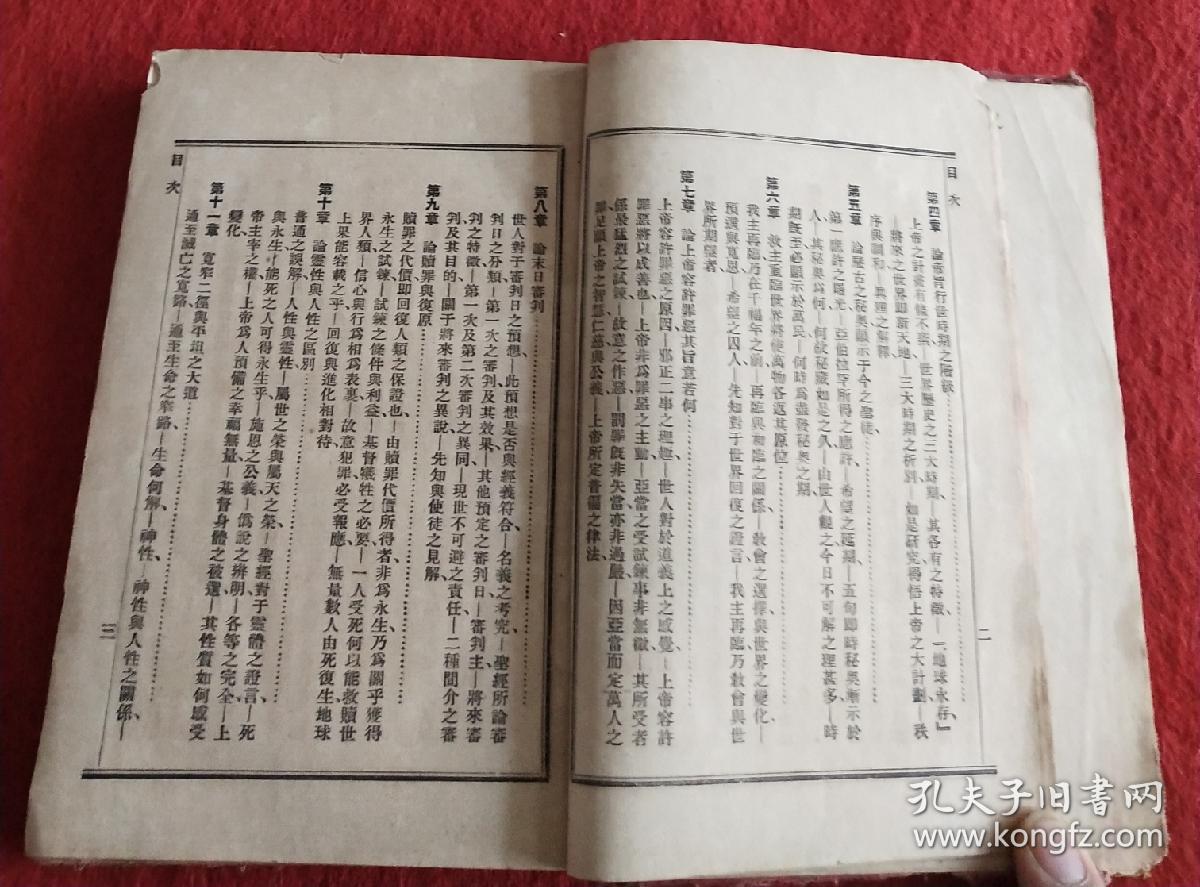 目次
二
第四章　論常謂行世時期之階級
上帝之計畫有條不紊—世界歷史之三大時期—其各有之特徵—「地球永存」
—將來之世界即新天地—三大時期之析別—如是研究得悟上帝之大計劃、秩
序與調和、真理之解釋
第五章　論歷古之秘奧顯示于今之聖徒
第一應許之曙光—亞伯拉罕所得之應許—希望之延期—五旬節時秘奧漸示於
人—其秘奧爲何—何故秘藏如是之久—由世人觀之今日不可解之理甚多—時
期旣至必顯示於萬民—何時爲盡發秘奧之期、
第六章　救主重臨世界將使萬物各返其原位
我主再臨乃在千禧年之前、再臨與初臨之關係—敎會之選擇與世界之變化—
預選與寬恩—希望之囚人—先知對于世界回復之證言—我主再臨乃敎會與世
界所期望者
第七章　論上帝容許罪惡其旨意若何
上帝容許罪惡之原因—邪正二事之理趣—世人對於道義上之感覺—上帝容許
罪惡將以成善也—上帝非爲罪惡之主動—亞當之受試鍊事非無徵—其所受者
係最猛烈之試鍊—故意之作惡—罰罪旣非失當、亦非過嚴—因亞當而定萬人之
罪足顯上帝之智慧、仁慈與公義—上帝所定普徧之律法
第八章　論末日審判
世人對于審判日之預想—此預想是否與經義符合—名義之考究—聖經所論審
判日之分類—第一次之審判及其效果—其他預定之審判日—審判主—將來審
判之特徵—第一次及第二次審判之異同—現世不可避之責任—二種間介之審
判及其目的—關于將來審判之異說—先知與使徒之見解、
第九章　論贖罪與復原
贖罪之代價即回復人類之保證也—由贖罪代價所得者非爲永生乃爲關乎獲得
永生之試鍊—試鍊之條件與利益—基督犧牲之必要—一人受死何以能救贖世
界人類—信心與行爲相爲表裏—故意犯罪必受報應—無量數人由死復生地球
上果能容載之乎—回復與進化相對待、
第十章　論靈性與人性之區別
普通之誤解—人性與靈性—屬世之榮與屬天之榮—聖經對于靈體之證言—死
與永生—能死之人可得永生乎—施恩之公義—僞說之辨明—各等之完全—上
帝主宰之權—上帝爲人預備之幸福無量—基督身體之被選—其性質如何感受
變化、
第十一章　寬窄二徑與平道之大道
通至滅亡之寬路—通至生命之窄路—生命何解—神性—神性與人性之關係—
目次
三
孔夫子旧书网
www.kongfz.com